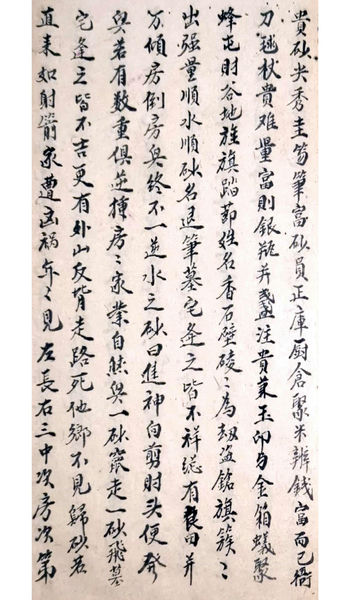 貴砂尖秀圭笏筆富砂員正庫厨倉聚米辨錢富而已衙
刀毬杖貴难量富則银瓶并盞注貴萊玉印与金箱蟻聚
蜂屯財谷地旌旗踏節姓名香石壁碐〻為刼盜銘旗簇〻
出强量順水順砂名退筆墓宅逢之皆不祥縱有良田并
万傾房倒房與終不一逆水之砂曰進神向剪肘头便發
與若有数重俱逆房〻家業自與一砂竄走一砂飛墓
宅逢之皆不吉更有外山反背走路死他鄉不見歸砂若
直来如射箭家遭凶禍年〻見左長右三中次房次第